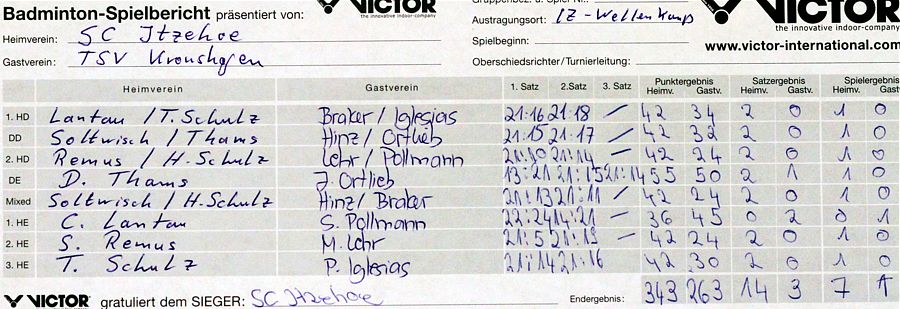 Badminton-Spielbericht präsentiert von: VICTOR the innovative indoor-company VICTOR the innovative indoor-company
Heimverein: SC Itzehoe Austragungsort: IZ-Wellenkamp
Gastverein: TSV Kronshagen Spielbeginn: www.victor-international.com
Oberschiedsrichter/Turnierleitung:
Heimverein Gastverein 1. Satz 2.Satz 3. Satz Punktergebnis Heimv. Gastv. Satzergebnis Heimv. Gastv. Spielergebnis Heimv. Gast
1. HD Lantau / T. Schulz Braker / Iglesias 21:16 21:18 / 42 34 2 0 1 0
DD Soltwisch / Thams Hinz / Ortlieb 21:15 21:17 / 42 32 2 0 1 0
2. HD Remus / H. Schulz Lehr / Pollmann 21:10 21:14 / 42 24 2 0 1 0
DE D. Thams J. Ortlieb 13:21 21:15 21:14 55 50 2 1 1 0
Mixed Soltwisch / H. Schulz Hinz / Braker 21:13 21:11 / 42 24 2 0 1 0
1. HE C. Lantau S. Pollmann 22:24 14:21 / 36 45 0 2 0 1
2. HE S. Remus M. Lehr 21:5 21:19 / 42 24 2 0 1 0
3. HE T. Schulz P. Iglesias 21:14 21:16 42 30 2 0 1 0
VICTOR gratuliert dem SIEGER: SC Itzehoe Endergebnis: 343 263 14 3 7 1